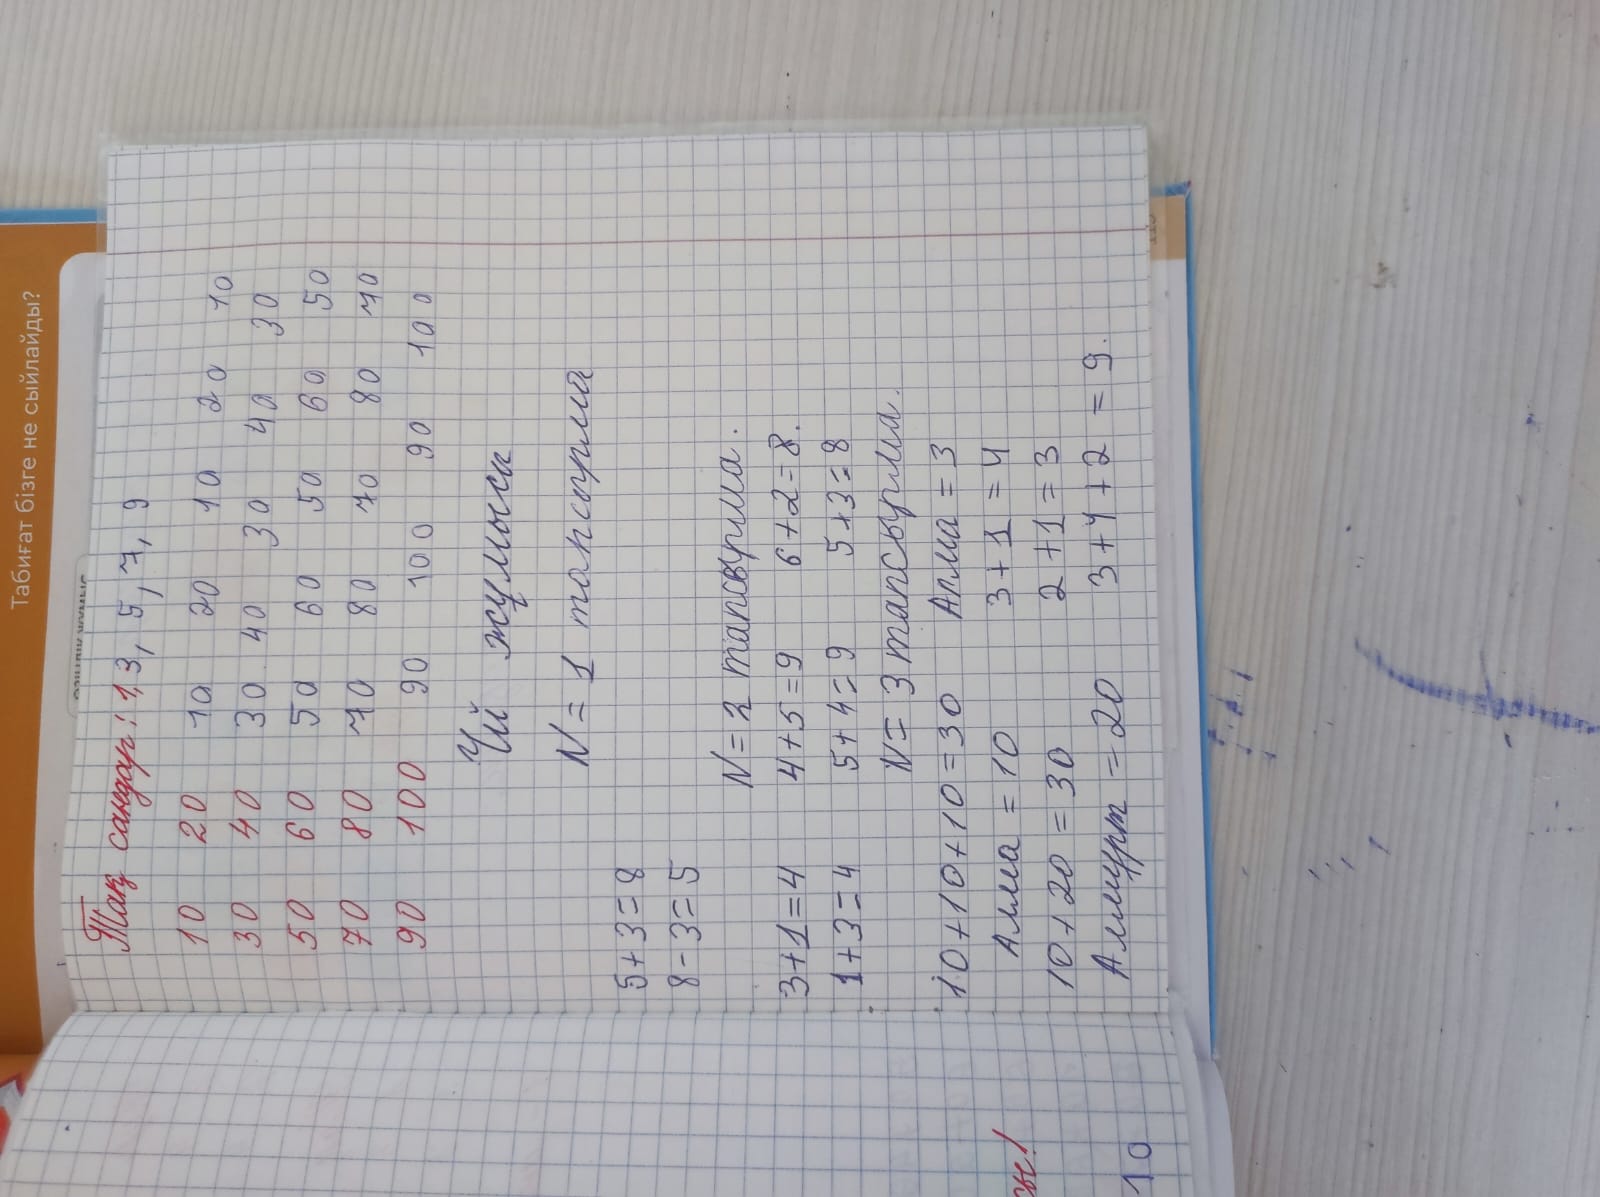 Табиғат бізге не сыйлайды?
Тақ сандар: 1, 3, 5, 7, 9
10 20 10 20 10 20 10
30 40 30 40 30 40 30
50 60 50 60 50 60 50
70 80 70 80 70 80 70
90 100 90 100 90 100
Үй жұмысы
N = 1 тапсырма
5+3=8
8-3=5
N = 2 тапсырма.
3+1=4 4+5=9 6+2=8.
1+3=4 5+4=9 5+3=8
N = 3 тапсырма.
10+10+10=30 Алма = 3
Алма = 10 3+1=4
10+20=30 2+1=3
Алмұрт = 20 3+4+2=9.
10